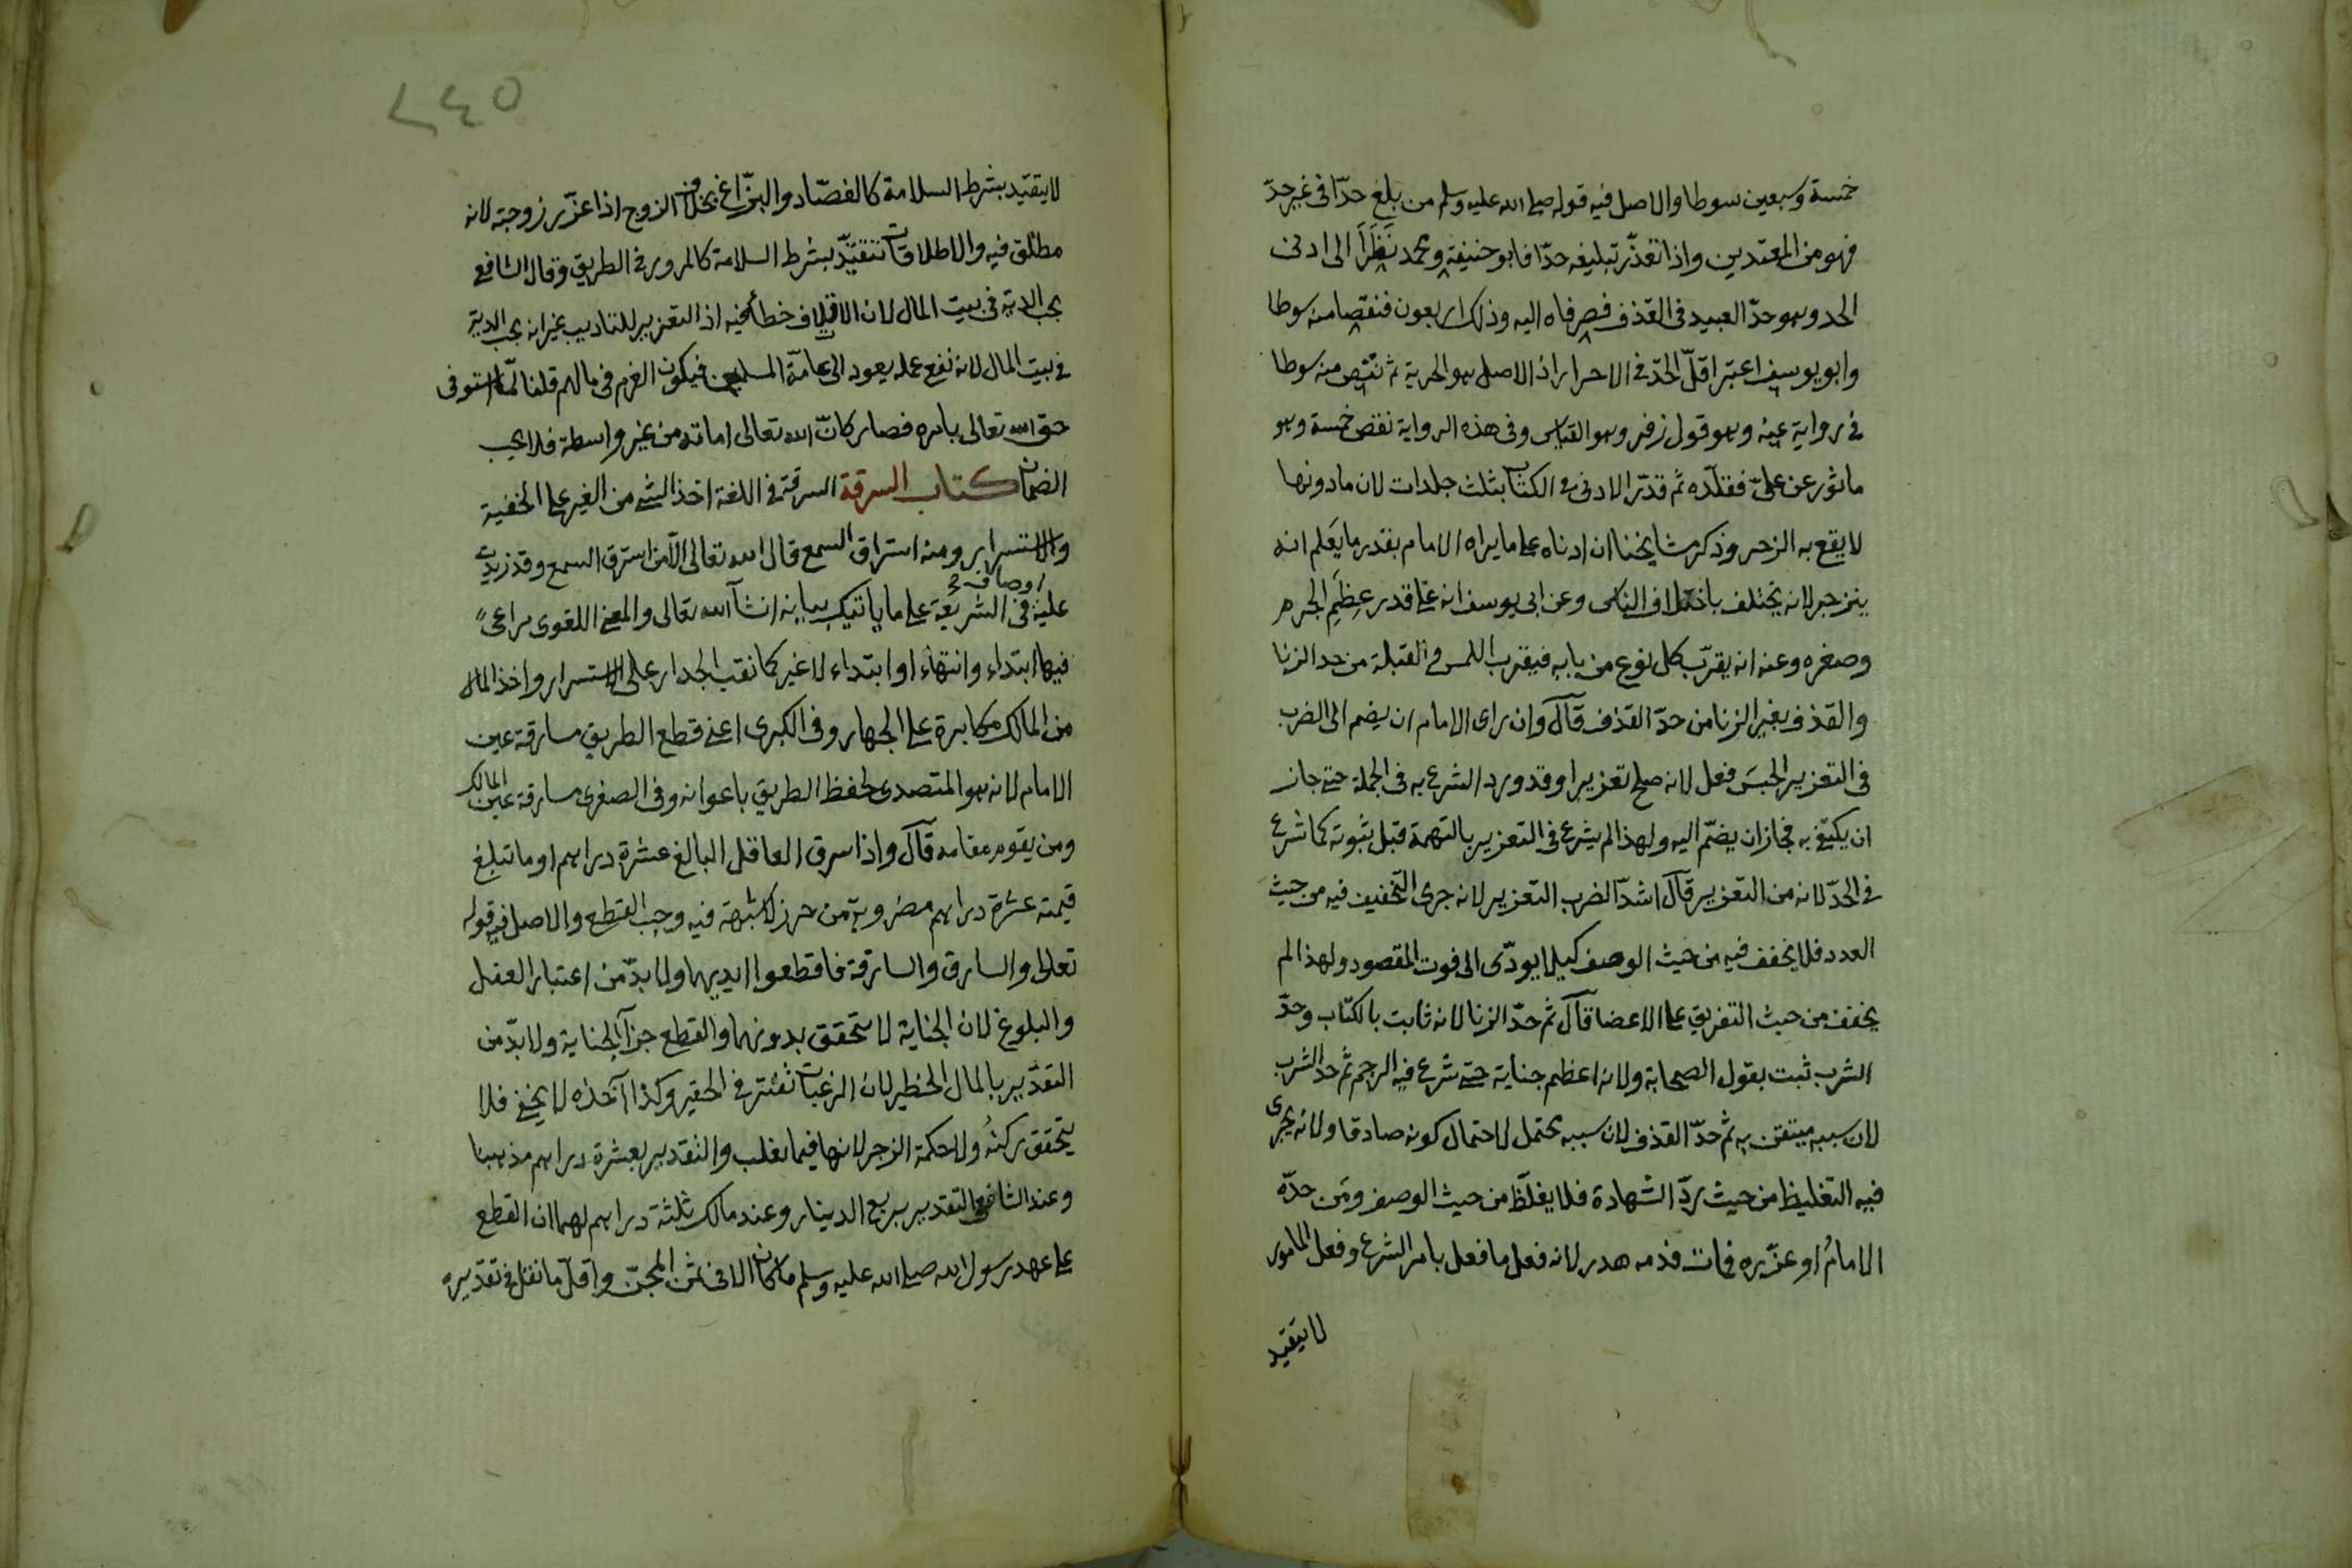 خمسة وسبعين سوطا والاصل فيه قوله صلى الله عليه وسلم من بلغ حدّا فى غير حدّ
فهو من المعتدين واذا تعذّر تبليغه حدّا فابو حنيفة ومحمد نَظَرَا الى ادنى
الحد وهو حدّ العبيد فى القذف فصرفاه اليه وذلك اربعون فنقصا منه سوطا
وابو يوسف اعتبر اقلّ الحدّ فى الاحرار اذ الاصل هو الحرية ثم نقص منه سوطا
فى رواية عنه وهو قول زفر وهو القياس وفى هذه الرواية نقص خمسة وهو
ماثور عن علىّ فقلّده ثم قدّر الادنى فى الكتاب بثلث جلدات لان ما دونها
لا يقع به الزجر وذكر مشايخنا ان ادناه على ما يراه الامام بقدر ما يعلم انه
ينزجر لانه يختلف باختلاف الناس وعن ابى يوسف انه على قدر عِظَمِ الجرم
وصغره وعنه انه يقرّب كل نوع من بابه فيقرب اللمس و القبلة من حد الزنا
والقذف بغير الزنا من حدّ القذف قال وان راى الامام ان يضم الى الضرب
فى التعزير الحبسَ فعل لانه صلح تعزيرا وقد ورد الشرع به فى الجملة حتى جاز
ان يكتفى به فجاز ان يضمّ اليه ولهذا لم يشرع فى التعزير بالتهمة قبل ثبوته كما شرع
فى الحدّ لانه من التعزير قال اشدّ الضرب التعزير لانه جرى التخفيف فيه من حيث
العدد فلا يخفف فيه من حيث الوصف كيلا يودّى الى فوت المقصود ولهذا لم
يخفف من حيث التفريق على الاعضا قال ثم حدّ الزنا لانه ثابت بالكتاب وحدّ
الشرب ثبت بقول الصحابة ولانه اعظم جناية حتى شرع فيه الرجم ثم حد الشرب
لان سببه متيقن به ثم حدّ القذف لان سببه محتمل لاحتمال كونه صادقا ولانه جرى
فيه التغليظ من حيث ردّ الشهادة فلا يغلّظ من حيث الوصف ومَن حدّه
الامامُ او عزّره فمات فدمه هدر لانه فعل ما فعل بامر الشرع وفعل المامور
لا يتقيد
٢٤٥
لا يتقيّد بشرط السلامة كالفصّاد والبزّاغ بخلاف الزوج اذا عزّر زوجته لانه
مطلق فيه والاطلاقات تتقيّد بشرط السلامة كالمرور فى الطريق وقال الشافعى
يجب الدية فى بيت المال لان الاتلاف خطأ فيه اذ التعزير للتاديب غير انه يجب الدية
فى بيت المال لانه نفع عمله يعود الى عامّة المسلمين فيكون الغرم فى مالهم قلنا لمّا استوفى
حق الله تعالى بامره فصار كانّ الله تعالى اماته من غير واسطة فلا يجب
الضمان كتاب السرقة السرقة فى اللغة اخذ الشى من الغير على الخفية
والاستسرار ومنه استراق السمع قال الله تعالى الّا من استرق السمع وقد زيدت
اوصاف
عليه فى الشريعة على ما ياتيك بيانه انشآ الله تعالى والمعنى اللغوى مراعى
فيها ابتداء وانتهاء او ابتداء لا غير كما نقب الجدار على الاستسرار واخذ المال
من المالك مكابرة على الجهار وفى الكبرى اعنى قطع الطريق مسارقة عين
الامام لانه هو المتصدى لحفظ الطريق باعوانه وفى الصغرى مسارقة عين المالك
ومن يقوم مقامه قال واذا سرق العاقل البالغ عشرة دراهم او ما تبلغ
قيمته عشرة دراهم مضروبة من حرز لا شبهة فيه وجب القطع والاصل فيه قوله
تعالى والسارق والسارقة فاقطعوا ايديهما ولا بدّ من اعتبار العقل
والبلوغ لان الجناية لا تتحقق بدونهما والقطع جزآ الجناية ولا بدّ من
التقدير بالمال الخطير لان الرغبات تفتر فى الحقير وكذا آخذه لا يخفى فلا
يتحقق ركنُه ولا حكمة الزجر لانها فيما يغلب والتقدير بعشرة دراهم مذهبنا
وعند الشافعى التقدير بربع الدينار وعند مالك ثلثة دراهم لهما ان القطع
على عهد رسول الله صلى الله عليه وسلم ما كان الا فى ثمن المجنّ واقلّ ما نقل فى تقديره